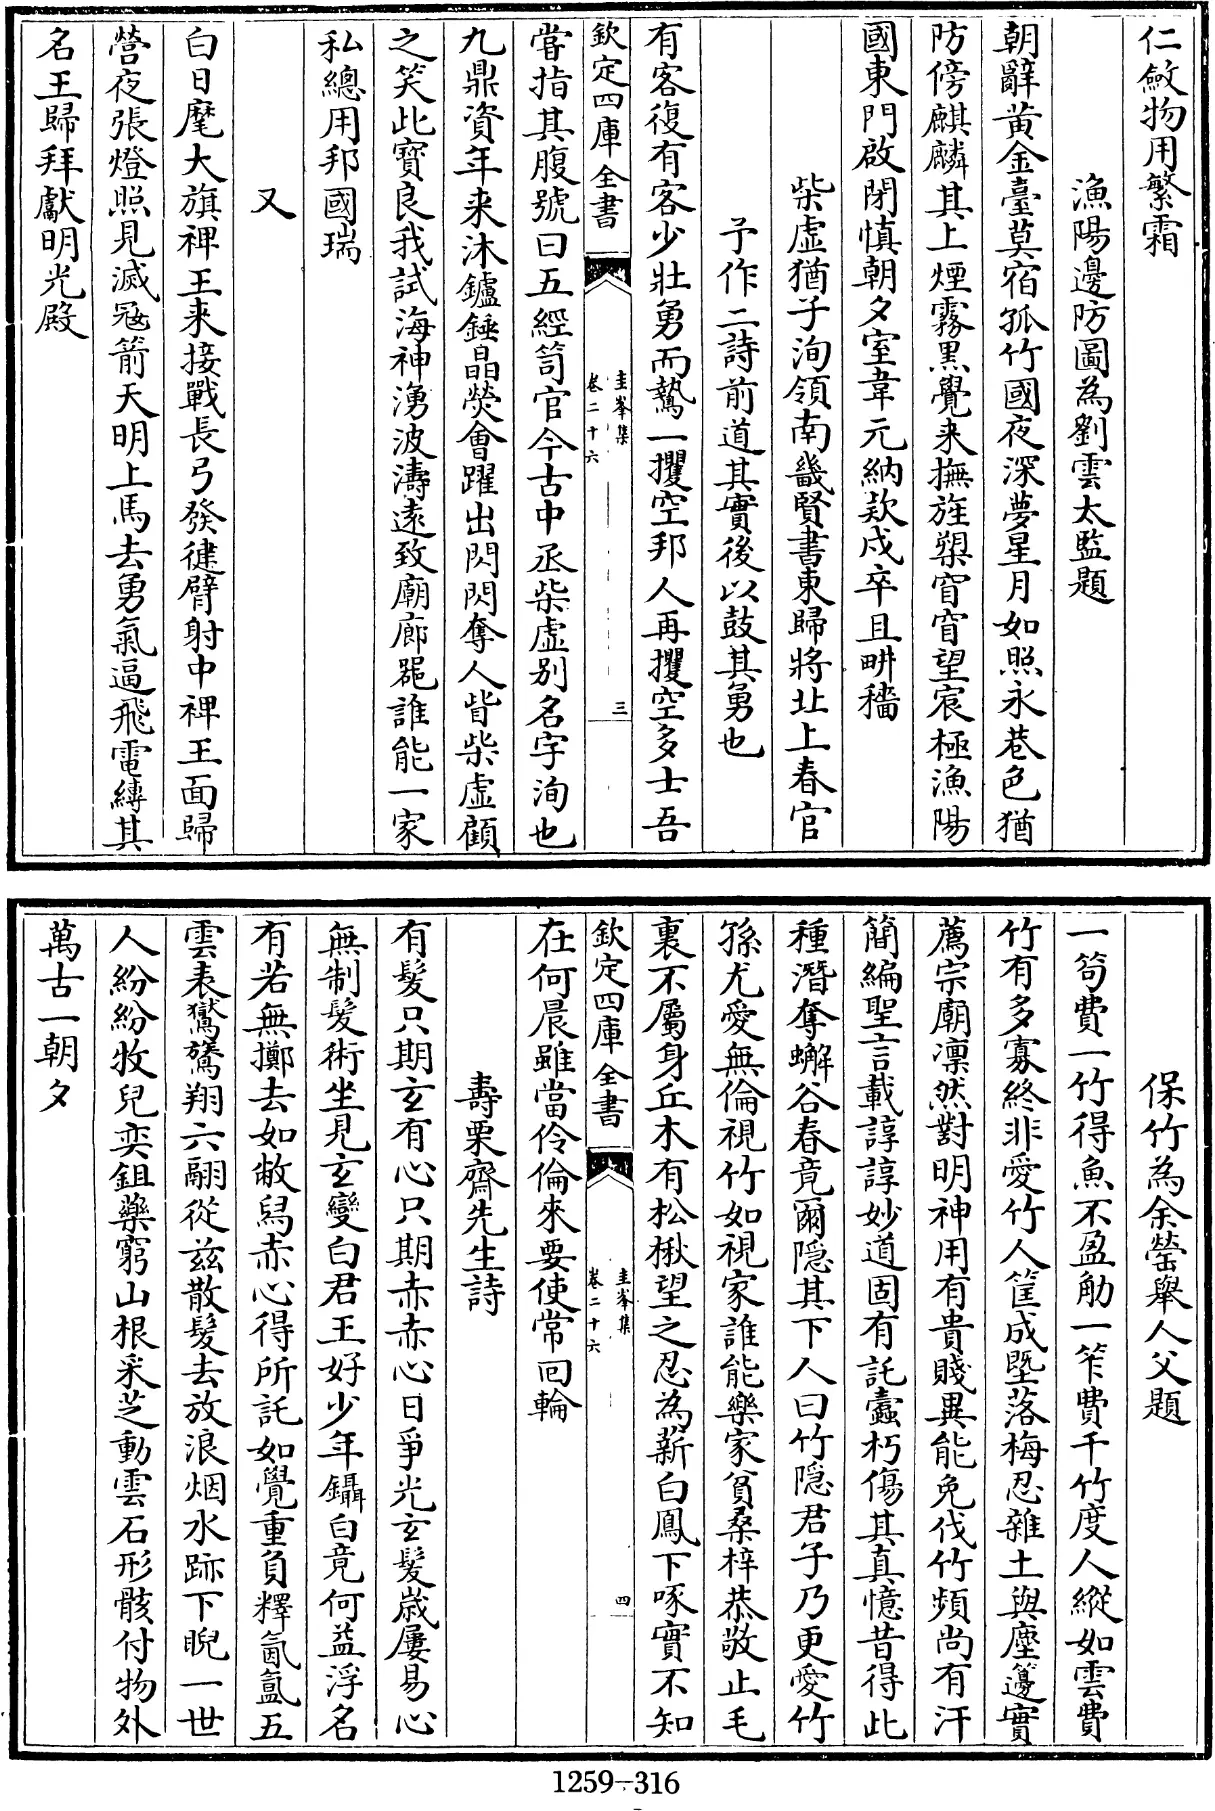 仁斂物用繁霜
漁陽邊防圖為劉雲太監題
朝辭黄金臺莫宿孤竹國夜深夢星月如照永巷色猶
防傍麒麟其上煙霧黒覺来撫旌槊窅窅望宸極漁陽
國東門啟閉慎朝夕室韋元納欵戍卒且畊穡
柴虚猶子洵領南畿賢書東歸將北上春官
予作二詩前道其實後以鼓其勇也
有客復有客少壯勇而鷙一攫空邦人再攫空多士吾
欽定四庫全書
圭峯集
卷二十六
三
嘗指其腹號曰五經笥官今古中丞柴虚别名字洵也
九鼎資年来沐鑪錘晶熒會躍出閃閃奪人眥柴虚顧
之笑此寳良我試海神湧波濤遠致廟廊噐誰能一家
私總用邦國瑞
又
白日麾大旗裨王来接戰長弓發徤臂射中裨王面歸
營夜張燈照見滅寇箭天明上馬去勇氣逼飛電縛其
名王歸拜獻明光殿
保竹為余瑩舉人父題
一笱費一竹得魚不盈觔一笮費千竹度人縱如雲費
竹有多寡終非愛竹人筐成墍落梅忍雜土與塵籩實
薦宗廟凛然對明神用有貴賤異能免伐竹頻尚有汗
簡編聖言載諄諄妙道固有託蠧朽傷其真憶昔得此
種潛奪嶰谷春竟爾隠其下人曰竹隠君子乃更愛竹
孫尤愛無倫視竹如視家誰能樂家貧桑梓恭敬止毛
裏不屬身丘木有松楸望之忍為薪白鳳下啄實不知
欽定四庫全書
圭峯集
卷二十六
四
在何晨雖當伶倫來要使常囘輪
壽栗齋先生詩
有髮只期玄有心只期赤赤心日爭光玄髮嵗屢易心
無制髮術坐見玄變白君王好少年鑷白竟何益浮名
有若無擲去如敝舄赤心得所託如覺重負釋氤氲五
雲表鸑鷟翔六翮從兹散髮去放浪烟水跡下睨一世
人紛紛牧兒奕鉏藥窮山根采芝動雲石形骸付物外
萬古一朝夕
1259-316